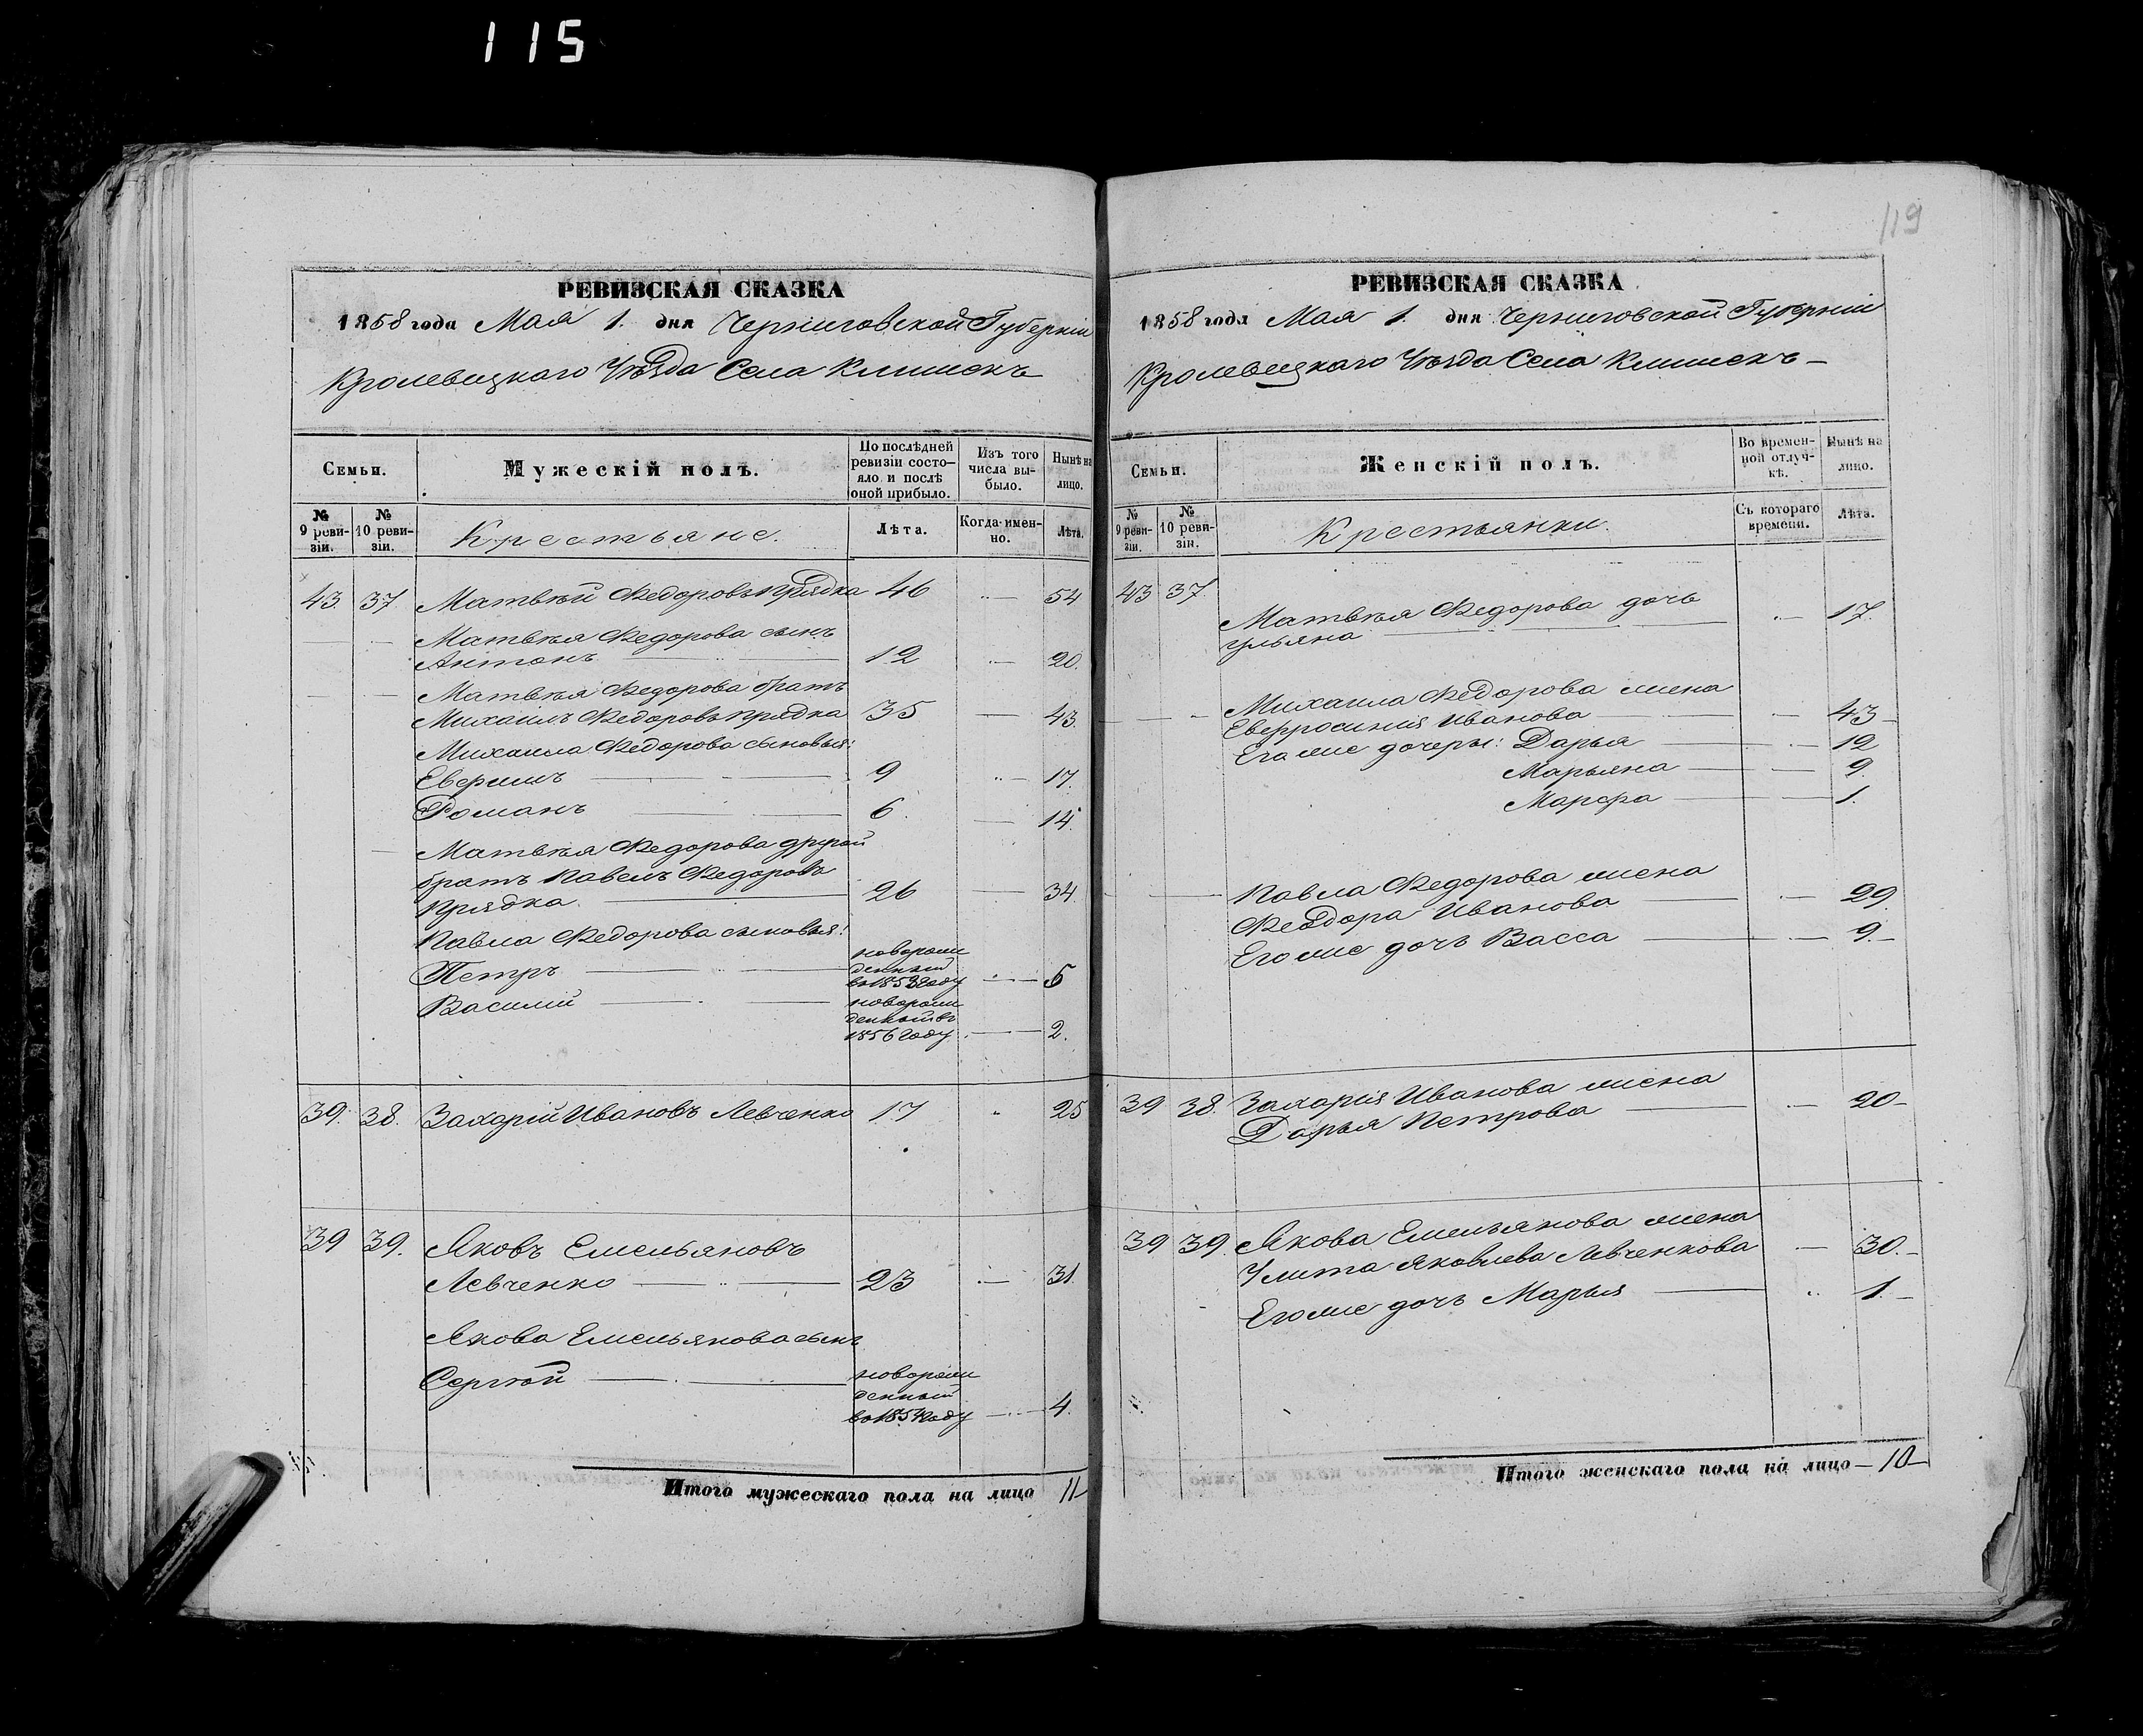 115
РЕВИЗСКАЯ СКАЗКА
1858 года Мая 1. дня Черниговской Губерніи
Кролевецкаго Уѣзда Села Клишекъ
Семьи.
Мужескій полъ.
По послѣдней ревизіи состо-
яло и послѣ оной прибыло.
Изъ того числа вы-
было.
Нынѣ на лицо.
№ 9 реви-
зіи.
№ 10 реви-
зіи.
Крестьяне.
Лѣта.
Когда имен-
но.
Лѣта.
43. 37. Матвѣй Федоровъ Прядка 46 54
Матвѣя Федорова сынъ
Антонъ 12 20.
Матвѣя Федорова братъ
Михаилъ Федоровъ Прядка 35 43.
Михаила Федорова сыновья:
Еверимъ 9 17.
Романъ 6. 14.
Матвѣя Федорова другой
братъ Павелъ Федоровъ
Прядка. 26 34.
Павла Федорова сыновья:
Петръ новорож
денный
во 1853 году 5
Василій новорож
денный въ
1856 году 2.
39. 38. Захарій Ивановъ Левченко 17 25
39 39. Яковъ Емельяновъ
Левченко 23 31.
Якова Емельянова сынъ
Сергѣй новорож
денный
во 1854 году 4.
Итого мужескаго пола на лицо 11
119
РЕВИЗСКАЯ СКАЗКА
1858 года Мая 1. дня Черниговской Губерніи
Кролевецкаго Уѣзда Села Клишекъ
Семьи.
Женскій полъ.
Во времен-
ной отлуч-
кѣ.
Нынѣ на лицо.
№ 9 реви-
зіи.
№ 10 реви-
зіи.
Крестьянки.
Съ котораго времени.
Лѣта.
43 37.
Матвѣя Федорова дочь 17.
Ульяна
Михаила Федорова жена
Евфросинія Иванова 43
Его же дочери: Дарья 12
Марьяна 9.
Марфа 1.
Павла Федорова жена
Федора Иванова 29.
Его же дочь Васса 9.
39 38. Захарія Иванова жена
Дарья Петрова 20
39 39. Якова Емельянова жена
Улита Яковлева Левченкова 30.
Его же дочь Марья 1.
Итого женскаго пола на лицо 10